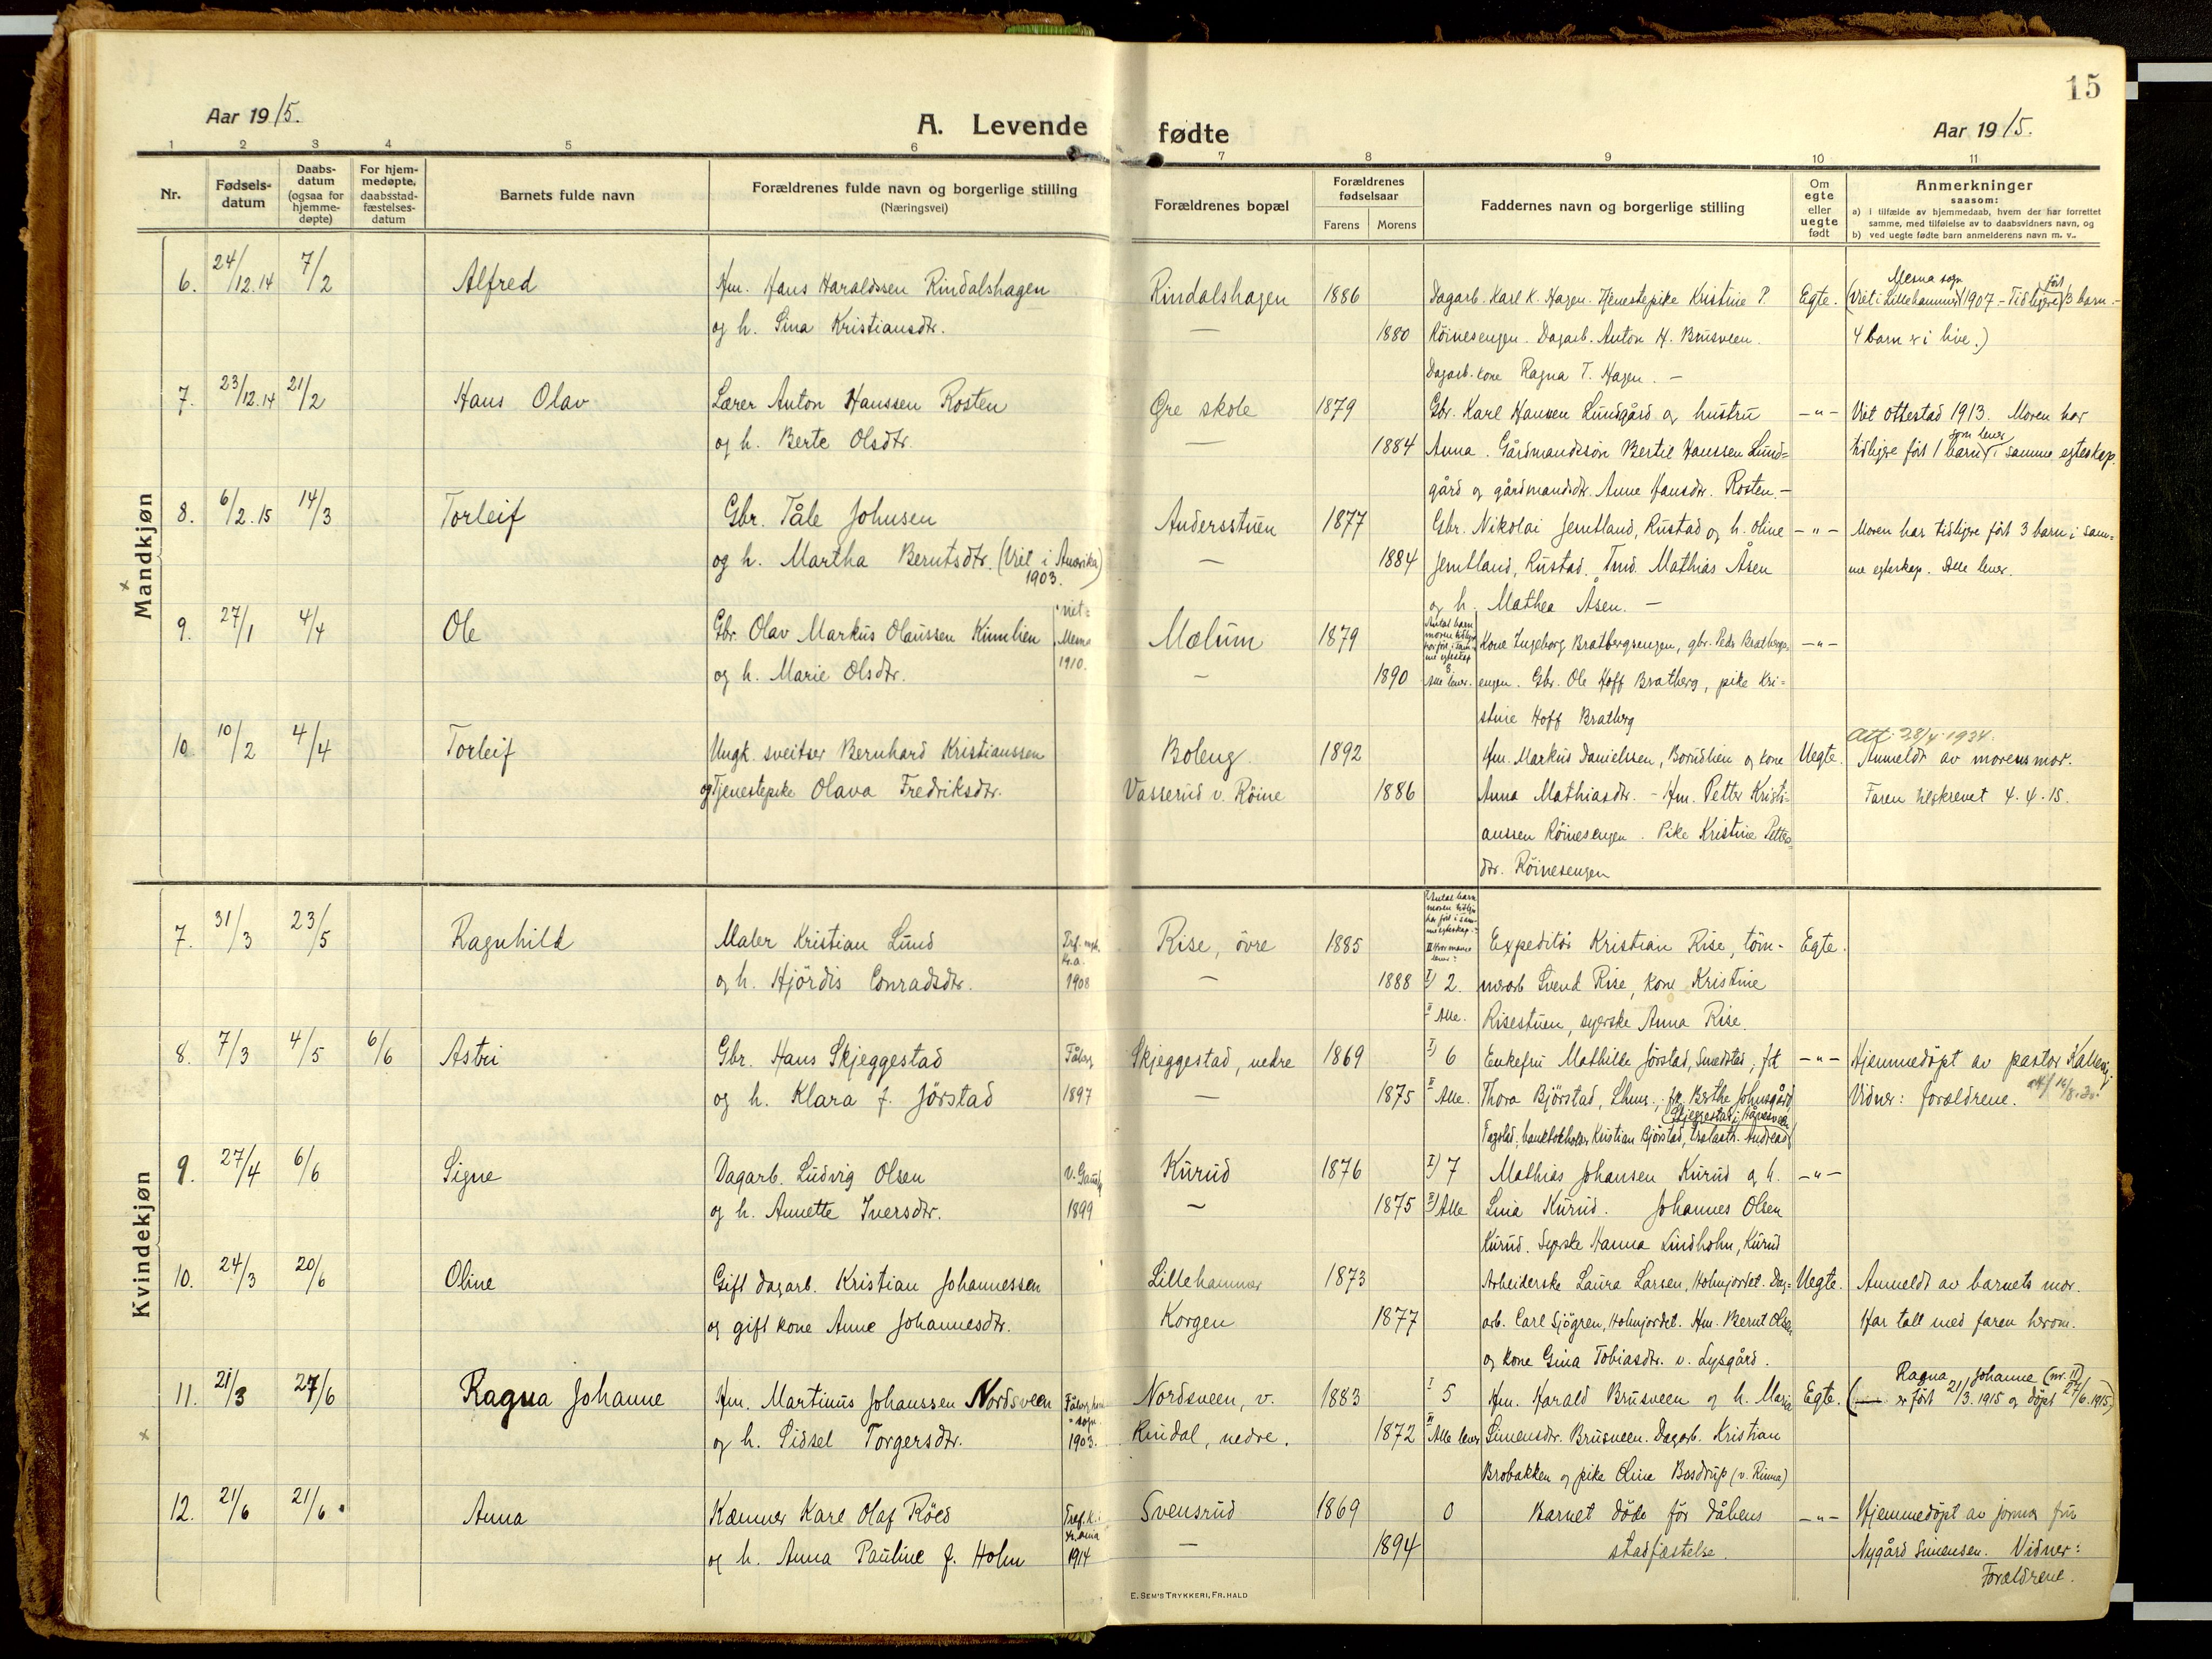 15
Aar 1915.
A. Levende fødte
Aar 1915.
1 2 3 4 5 6 7 8 9 10 11
Nr.
Fødsels-
datum
Daabs-
datum
(ogsaa for
hjemme-
døpte)
For hjem-
medøpte,
daabsstad-
fæstelses-
datum
Barnets fulde navn
Forældrenes fulde navn og borgerlige stilling
(Næringsvei)
Forældrenes bopæl
Forældrenes
fødselsaar
Farens Morens
Faddernes navn og borgerlige stilling
Om
egte
eller
uegte
født
Anmerkninger
saasom:
a) I tilfælde av hjemmedaab, hvem der har forrettet
samme, med tilføielse av to daabsvidners navn, og
b) ved uegte fødte barn anmelderens navn m. v..
Mandkjøn
6. 24/12.14 7/2 Alfred
Hm. Hans Haraldssen Rindalshagen
og h. Sina Kristiansdtr.
Rindalshagen 1886
— 1880
Dagarb. Karl K. Hagen. Tjenestepike Kristine P.
Röinesengen. Dagarb. Anton H. Brusveen.
Dagarb. kone Ragna T. Hagen. —
Egte.
Mesna sogn
(Viet i Lillehammer 1907 - Tidligere födt 3 barn. -
4 barn er i live.)
7. 23/12.14 21/2 Hans Olav
Lærer Anton Hanssen Rosten
og h. Berte Olsdtr.
Øre skole 1879
— 1884
Gbr. Karl Hansen Lundgård og hustru
Anna. Gårdmandssön Bertil Hanssen Lund=
gård og gårdmandsdtr. Anne Hansdtr. Rosten. —
— " —
Viet Ottestad 1913. Moren har
tidligere föd 1 barn som lever i samme egteskap.
8. 6/2.15 14/3 Torleif
Gbr. Tåle Johnsen
og h. Martha Berntsdtr. (Viet i Amerika)
1903.
Andersstuen 1877
— 1884
Gbr. Nikolai Jemtland, Rustad og h. Oline
Jemtland, Rustad. Tmd. Mathias Åsen
og h. Mathea Åsen. —
— " —
Moren har tidligere född 3 barn i sam=
me egteskap. Alle lever.
9. 27/1 4/4 Ole
Gbr. Olav Markus Olaussen Kinnlien
og h. Marie Olsdtr.
viet=
Mesna
1910.
Mælum 1879
— 1890
Antal barn
moren tidlige
har föd i sam=
me egteskap
8.
Alle lever.
Kone Ingeborg Bratbergsengen, gbr. Peder Bratbergs=
engen. Gbr. Ole Hoff Bratberg, pike Kri=
stine Hoff Bratberg
— " —
10 10/2 4/4 Torleif
Ungk. sveitser Bernhard Kristianssen
og Tjenestepike Olava Fredriksdtr.
Boleng 1892
Vasserud v. Röine 1886
Hm. Markus Danielssen, Borudlien og kone
Anna Mathiasdtr. - Hm. Petter Kristi=
anssen Röinesengen. Pike Kristine Petters=
dtr. Röinesengen
Uegte.
Att. 28/4 1934.
Anmeldt av morens mor.
Faren tilskrevet 4.4.15.
Kvindekjøn
7. 31/3 23/5 Ragnhild
Maler Kristian Lund
og h. Hjördis Conradsdtr.
Kr.a.
1908
Rise, övre 1885
— 1888
I Antal barn
moren tidlige
har föd i sam=
me egteskap.
II Hvor mange
lever?
I) 2.
II Alle.
Expeditör Kristian Rise, töm-
merarb Svend Rise, kone Kristine
Risestuen, syerske Anna Rise.
Egte.
8. 7/3 4/5 6/6 Astri
Gbr. Hans Skjeggestad
og h. Klara f. Jörstad
Fåberg
1897
Skjeggestad, nedre 1869
— 1875
I) 6
II Alle.
Enkefru Mathilde Jörstad, Smedstad, frk
Thora Bjørstad, Lhmr., frk Berthe Johnsgård
Fagstad, bankbokholder Kristian Bjørstad, Andreas
— " —
Hjemmedöpt av pastor Kallevig.
Vidner: forældrene.
9. 27/4 6/6 Signe
Dagarb. Ludvig Olsen
og h. Annette Iversdtr.
v. Gausdal
1899
Kurud 1876
— 1875
I) 7
II) Alle
Mathias Johansen Kurud og h.
Lina Kurud. Johannes Olsen
Kurud. Syerske Hanna Lindholm, Kurud
— " —
10. 24/3 20/6 Oline
Gift dagarb. Kristian Johannessen
og gift kone Anne Johannesdtr.
Lillehammer 1873
Korgen 1877
Arbeiderske Laura Larsen, Holmjordet. Dag=
arb. Carl Sjögren, Holmjordet. Hm. Bernt Olsen
og kone Gina Tobiasdtr. v. Lysgård.
Uegte.
Anmeldt av barnets mor.
Har talt med faren herom.
11. 21/3 27/6 Ragna Johanne
Hm. Martinus Johanssen Nordsveen
og h. Sidsel Torgersdtr.
1903.
Nordsveen, v. 1883
Rindal, nedre. 1872
I 5
II Alle lever
Hm. Harald Brusveen og h. Marie
Simensdtr. Brusveen. Dagarb. Kristian
Brobakken og pike Oline Bosdrup (v. Rinna)
Egte.
Ragna Johanne (nr. 11)
(er född 21/3.1915 og döpt 27/6.1915)
12. 21/6 21/6 Anna
Kæmner Karl Olaf Röed
og h. Anna Pauline f. Holm
Tref. k. i
Kr.ania
1914
Svensrud 1869
— 1894
0
Barnet döde för dåbens
stadfæstelse.
— " —
Hjemmedöpt av jormor fru
Nygård Simensen. Vidner:
Forældrene.
E. SEM'S TRYKKERI, FR.HALD